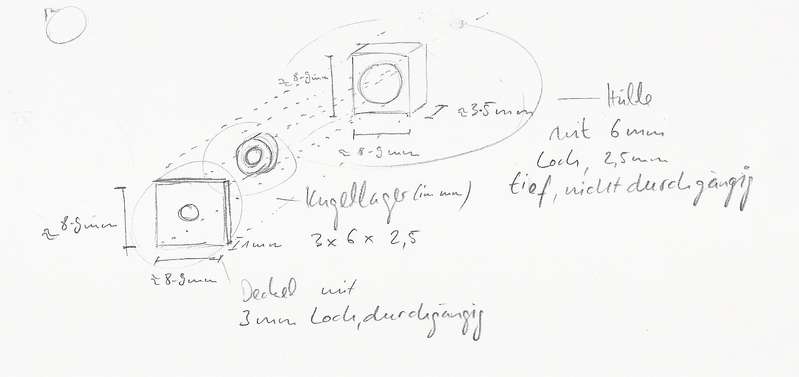 ≈ 8-9mm
≈ 3.5mm
≈ 8-9mm
Hülle
mit 6mm
Loch, 2,5mm
tief, nicht durchgängig
Kugellager (in mm)
3 x 6 x 2,5
≈ 8-9mm
1mm
≈ 8-9mm
Deckel mit
3mm Loch, durchgängig